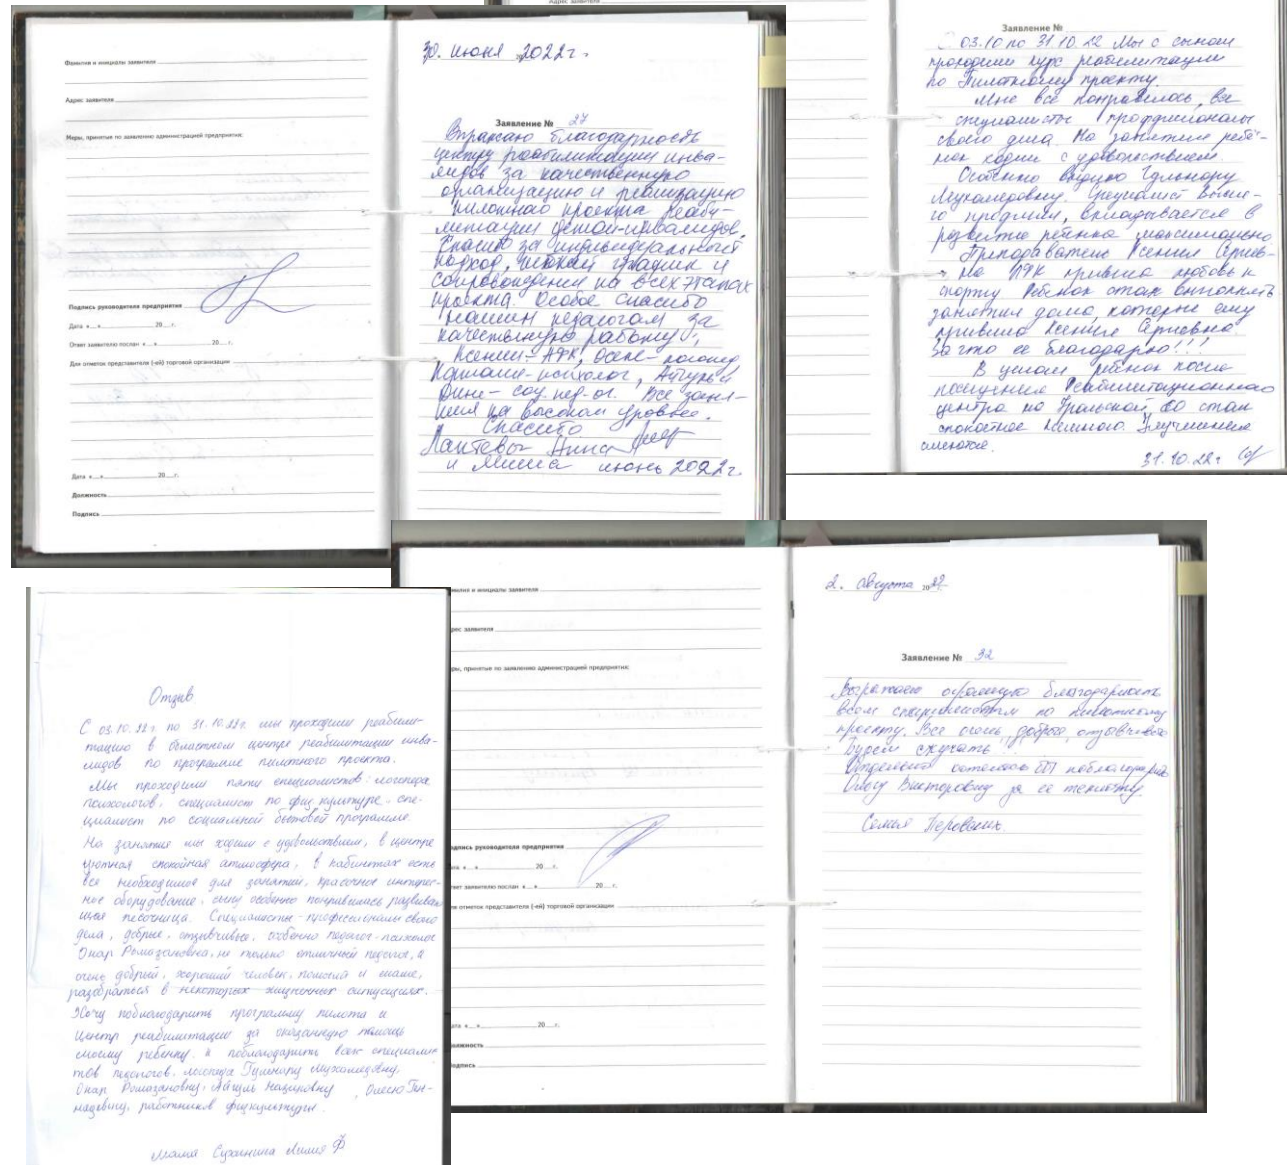 Фамилия и инициалы заявителя
Адрес заявителя
Меры, принятые по заявлению администрацией предприятия:
Подпись руководителя предприятия
Дата «__»__ 20__г.
Ответ заявителю послан «__»__ 20__г.
Для отметок представителя (-ей) торговой организации
Дата «__»__ 20__г.
Должность
Подпись
30. июня 2022г.
Заявление № 27
Выражаю благодарность
центру реабилитации инва-
лидов за качественную
организацию и реализацию
пилотного проекта реаби-
литации детей-инвалидов.
Спасибо за индивидуальный
подход, гибкий график и
сопровождение на всех этапах
проекта. Особое спасибо
нашим педагогам за
качественную работу:
Ксении - АФК, Олесе - логопед
психолог,
соц. пед-ог. Все заня-
тия на высоком уровне.
Спасибо
Лаптевы Нина
и Миша июнь 2022г.
Адрес заявителя
Заявление №
С 03.10 по 31.10.22 Мы с сыном
проходили курс реабилитации
по Пилотному проекту.
Мне все понравилось, все
специалисты профессионалы
своего дела. На занятия ребё-
нок ходил с удовольствием.
Особенно выделю Гульнару
Мухамедовну. Специалист высше-
го предмета, вкладывается в
развитие ребенка максимально
Преподаватель Ксения Арнев-
на ЛФК привила любовь к
спорту Ребенок стал выполнять
занятия дома, которые ему
привила Ксения Арневна
За что ее благодарю!!!
В целом ребенок после
посещения Реабилитационного
центра по Уральской, 60 стал
спокойнее немного. Улучшения
имеются.
31.10.22г
Отзыв
С 03.10.22г. по 31.10.22г. мы проходили реабили-
тацию в областном центре реабилитации инва-
лидов по программе пилотного проекта.
Мы проходили пять специалистов: логопеда
психологов, специалист по физ культуре, спе-
циалист по социальной бытовой программе.
На занятия мы ходили с удовольствием, в центре
уютная спокойная атмосфера, в кабинетах есть
все необходимое для занятий, красочное интерес-
ное оборудование, сыну особенно понравилась развиваю
щая песочница. Специалисты - профессионалы своего
дела, добрые, отзывчивые, особенно педагог-психолог
Онар Ромазановна, не только отличный педагог, а
очень добрый, хороший человек, помогла и маме,
разобраться в некоторых жизненных ситуациях.
Хочу поблагодарить программу пилота и
Центр реабилитации за оказанную помощь
моему ребенку. и поблагодарить всех специалис
тов педагогов, логопеда Гульнару Мухамедовну,
Онар Ромазановну, Айгуль Назировну, Олесю Ген-
надьевну, работников физкультуры.
Мама Сухинина Лилия Ф
милия и инициалы заявителя
рес заявителя
ры, принятые по заявлению администрацией предприятия:
одпись руководителя предприятия
ата «__»__ 20__г.
твет заявителю послан «__»__ 20__г.
ля отметок представителя (-ей) торговой организации
ата «__»__ 20__г.
олжность
одпись
2. августа 2022.
Заявление № 32
Выражаем огромную благодарность
всем специалистам по пилотному
проекту. Все очень добрые, отзывчивые
Будем скучать.
Отдельно хотелось бы поблагодарить
Ольгу Викторовну за ее теплоту.
Семья Перовских.